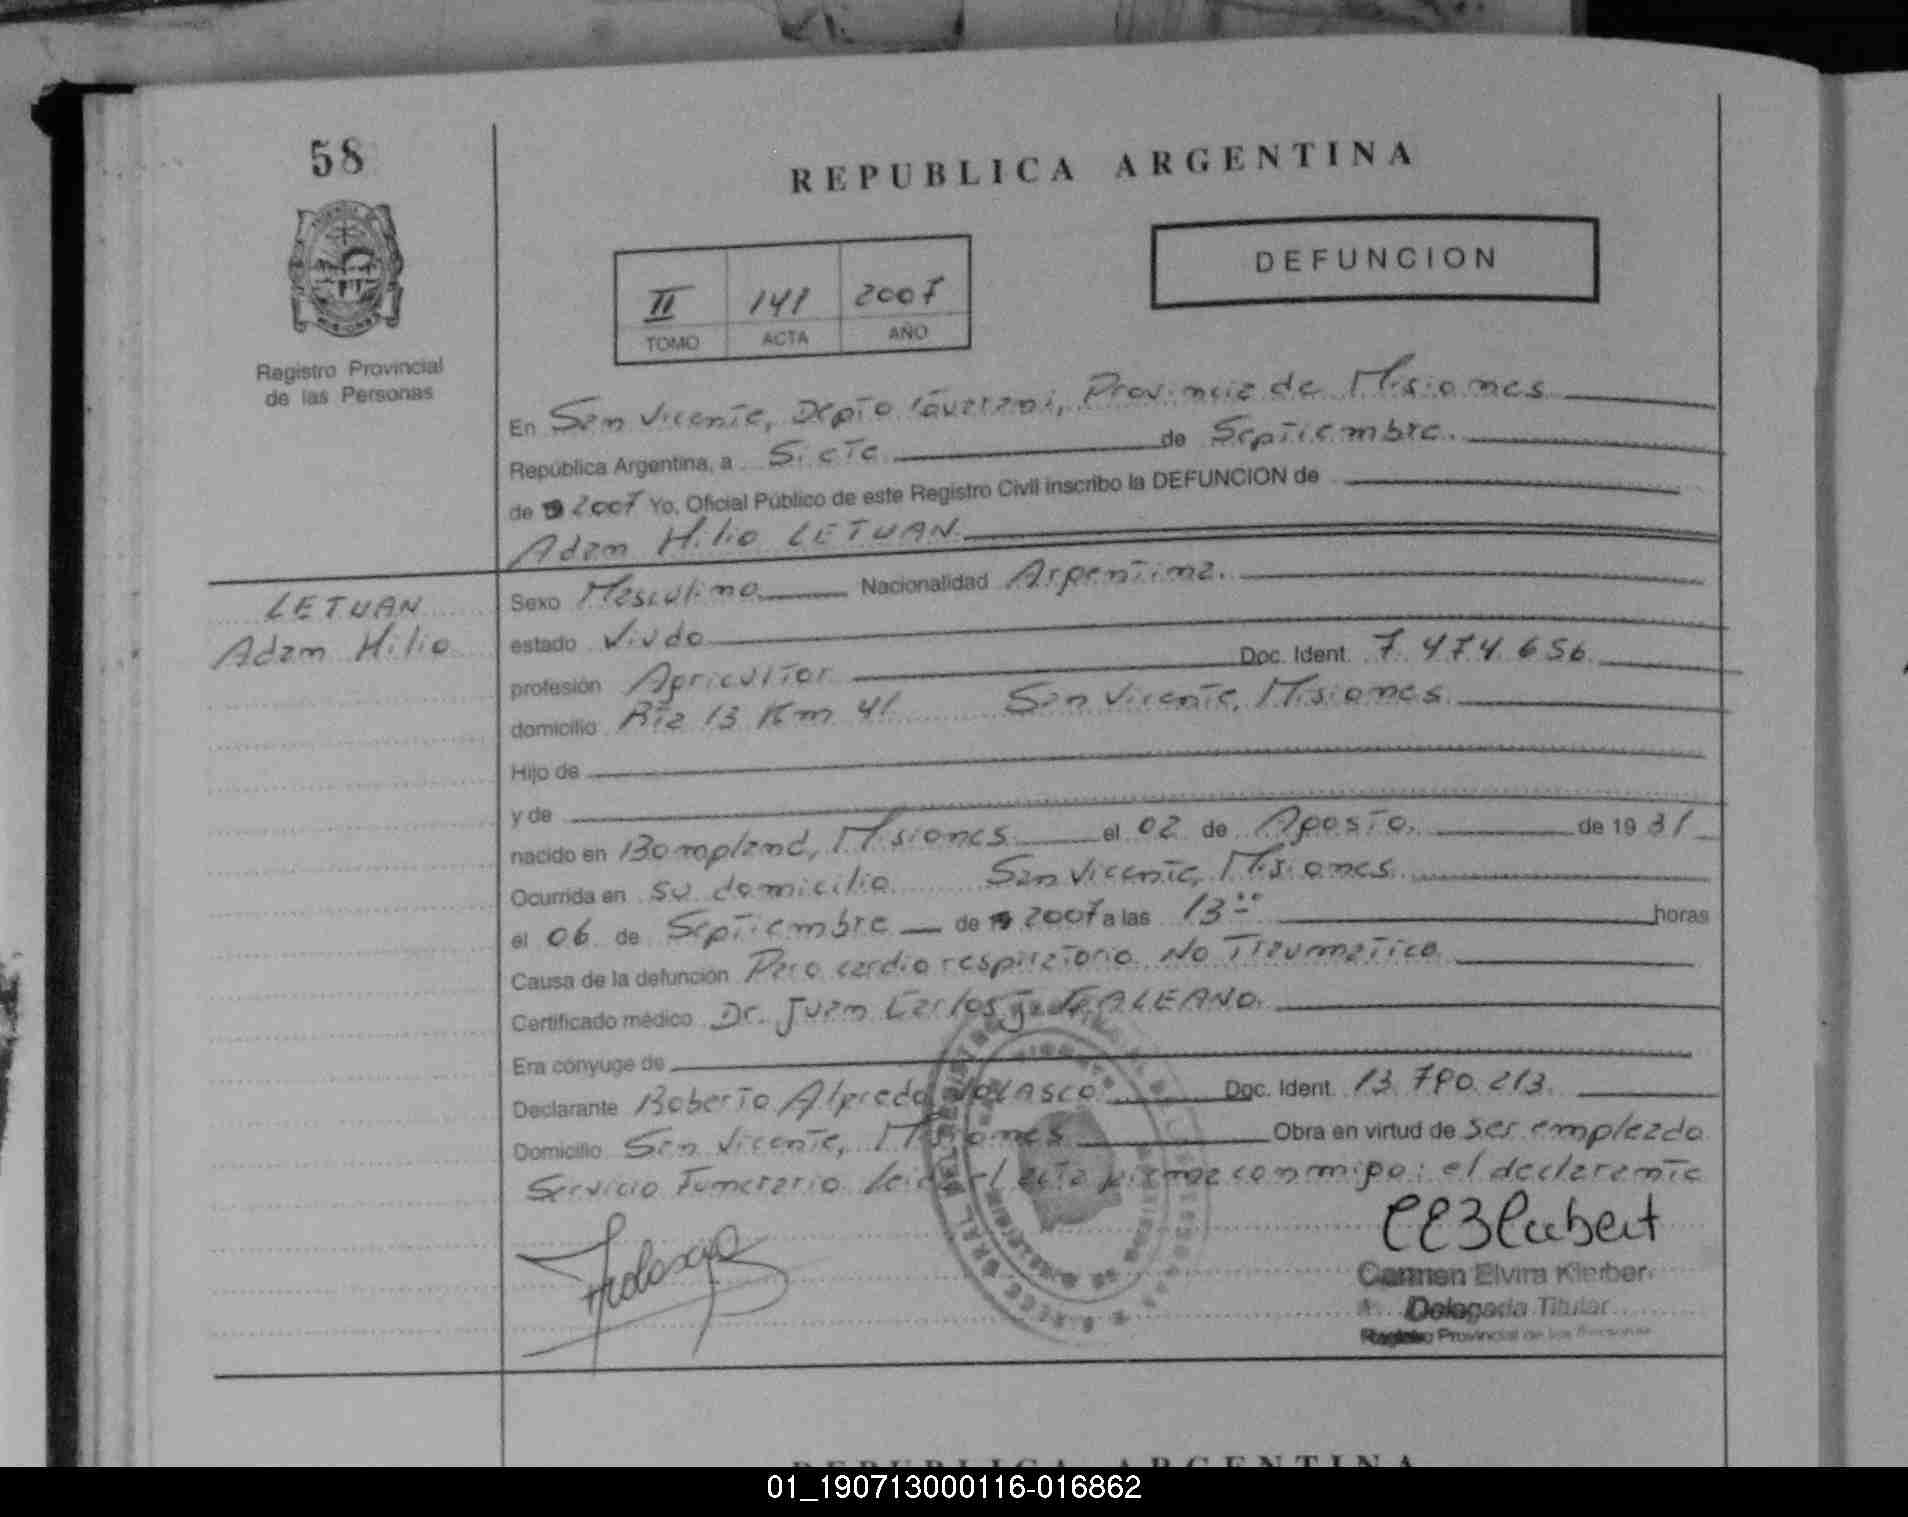 58
REPUBLICA ARGENTINA
DEFUNCION
II 141 2007
TOMO ACTA AÑO
Registro Provincial
de las Personas
En San Vicente, Depto Guaraní, Provincia de Misiones
República Argentina, a Siete de Septiembre.
de 2007 Yo, Oficial Público de este Registro Civil inscribo la DEFUNCION de
Adam Hilio LETUAN.
LETUAN
Adam Hilio
Sexo Masculino Nacionalidad Argentina.
estado Viudo
profesión Agricultor Doc. Ident. 7.474.656.
domicilio Rta 13 Km 41 San Vicente, Misiones.
Hijo de
y de
nacido en Bompland, Misiones el 02 de Agosto. de 19 31
Ocurrida en su domicilio San Vicente, Misiones.
el 06 de Septiembre de 2007 a las 13 horas
Causa de la defunción Paro cardio respiratorio No Traumatico
Certificado médico Dr. Juan Carlos GALEANO.
Era cónyuge de
Declarante Roberto Alfredo Doc. Ident. 13.790.213.
Domicilio San Vicente, Misiones Obra en virtud de ser empleado
Servicio Funerario leida el acta firma conmigo: el declarante
Carmen Elvira Kleiber
Delegada Titular
Registro Provincial de las Personas
REPUBLICA ARGENTINA
01_190713000116-016862